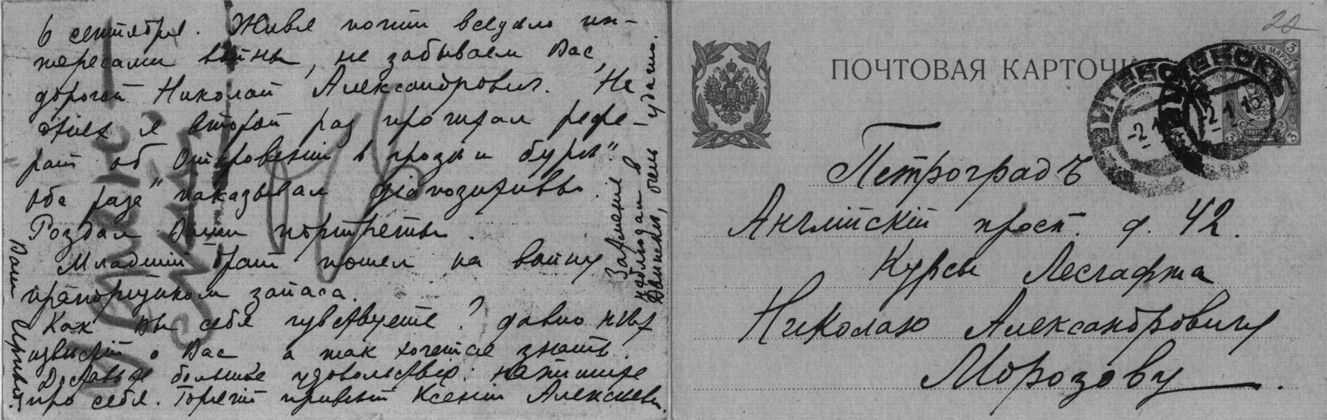 6 сентября. Живя почти всецело ин-
тересами войны, не забываем Вас,
дорогой Николай Александрович. Не
я второй раз прочитал рефе-
рат об „Откровении в грозе и буре"
оба раза показывал диапозитивы.
Роздал Ваши портреты.
Младший брат пошел на войну
прапорщиком запаса.
Как Вы себя чувствуете? давно нет
известий о Вас, а так хочется знать.
Доставьте большое удовольствие: напишите
про себя. Горячий привет Ксении Алексеев.
Затмение
наблюдал в
Двинске, очень удачно.
Ваш
ПОЧТОВАЯ КАРТОЧК
ВИТЕБСК
-2 1
-2 1 15
3
3
22
Петроградъ
Англійскій просп. д. 42.
Курсы Лесгафта
Николаю Александровичу
Морозову